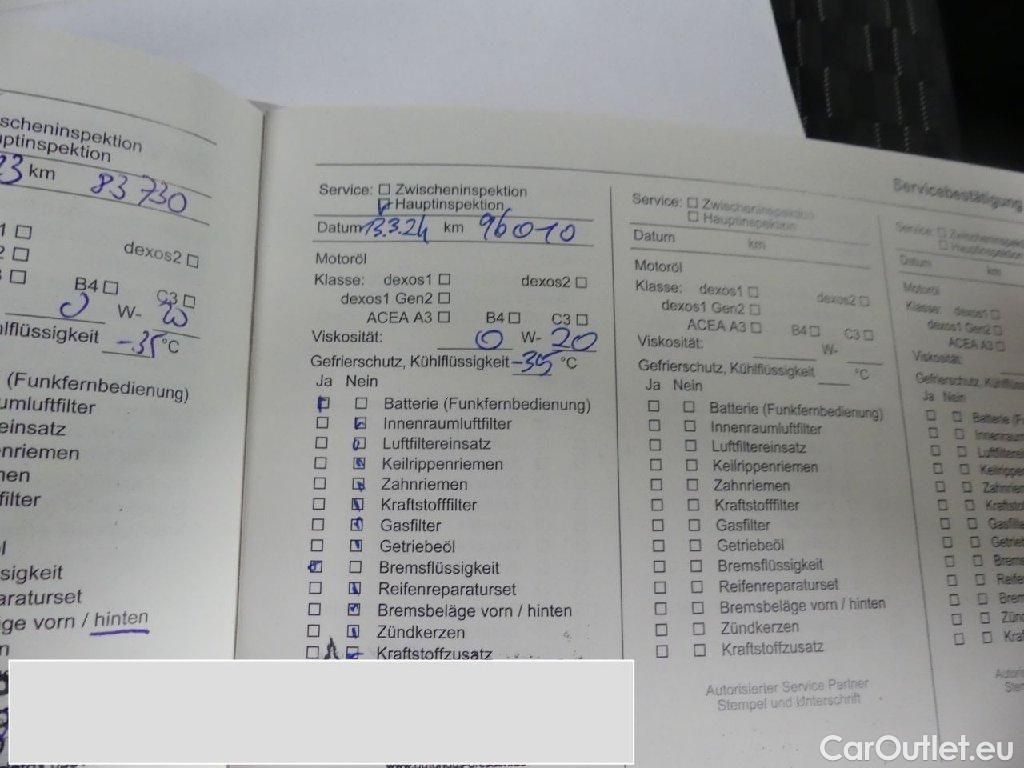 Servicebestätigung
scheninspektion
uptinspektion
23 km 83730
1
dexos2
2
B4 C3
0 W- 20
hlflüssigkeit -35 °C
(Funkfernbedienung)
umluftfilter
einsatz
nriemen
nen
filter
sigkeit
araturset
ge vorn / hinten
Service: Zwischeninspektion
Hauptinspektion
Datum 13.3.24 km 96010
Motoröl
Klasse: dexos1 dexos2
dexos1 Gen2
ACEA A3 B4 C3
Viskosität: 0 W- 20
Gefrierschutz, Kühlflüssigkeit -35 °C
Ja Nein
Batterie (Funkfernbedienung)
Innenraumluftfilter
Luftfiltereinsatz
Keilrippenriemen
Zahnriemen
Kraftstofffilter
Gasfilter
Getriebeöl
Bremsflüssigkeit
Reifenreparaturset
Bremsbeläge vorn / hinten
Zündkerzen
Kraftstoffzusatz
Service: Zwischeninspektion
Hauptinspektion
Datum km
Motoröl
Klasse: dexos1 dexos2
dexos1 Gen2
ACEA A3 B4 C3
Viskosität: W-
Gefrierschutz, Kühlflüssigkeit °C
Ja Nein
Batterie (Funkfernbedienung)
Innenraumluftfilter
Luftfiltereinsatz
Keilrippenriemen
Zahnriemen
Kraftstofffilter
Gasfilter
Getriebeöl
Bremsflüssigkeit
Reifenreparaturset
Bremsbeläge vorn / hinten
Zündkerzen
Kraftstoffzusatz
Autorisierter Service Partner
Stempel und Unterschrift
Service: Zwischeninspektion
Hauptinspektion
Datum km
Motoröl
Klasse: dexos1
dexos1 Gen2
ACEA A3
Viskosität:
Gefrierschutz, Kühlflüss
Ja Nein
Batterie (F
Innenraum
Luftfilterei
Keilrippen
Zahnriem
Kraftstof
Gasfilter
Getrieb
Brems
Reifen
Brem
Zünd
Kraf
Autori
Stem
CarOutlet.eu